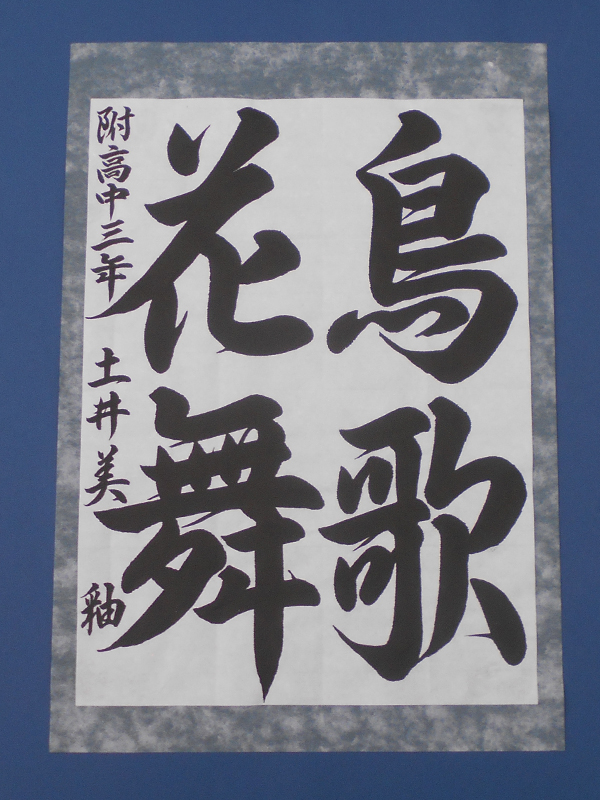 鳥歌
花舞
附高中三年 土井美釉